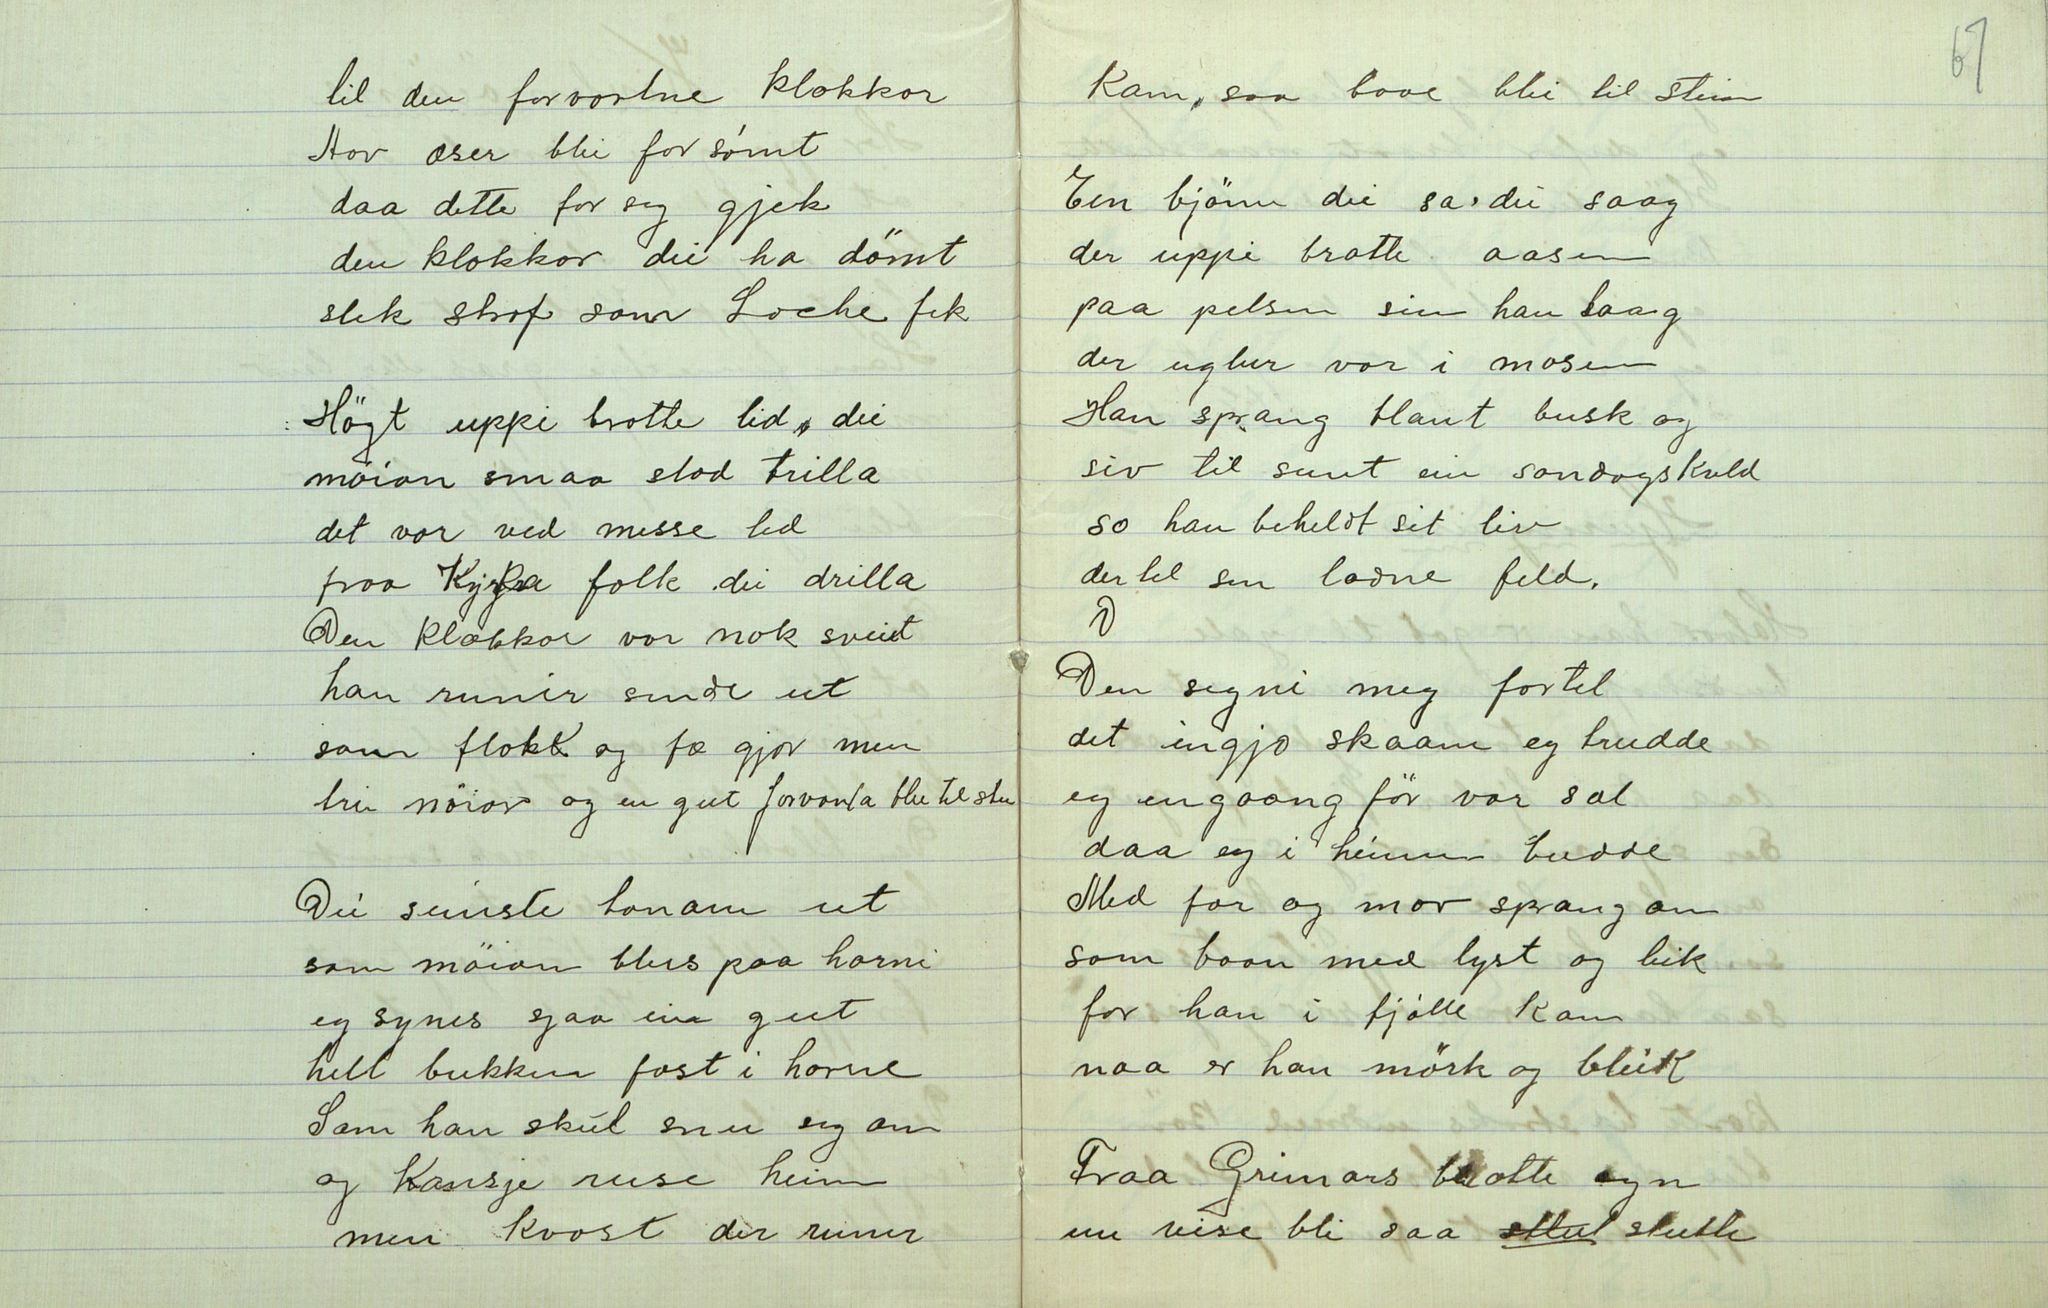 til den forvorlne klokkor
Hov æser blei forsömt
daa dette for seg gjek
den klokkor dei ha dömt
slek strof som Locke fek
Högt uppi brotte lid, dei
möian smaa stod trilla
det vor ved messe lid
fraa Kyrka folk dei drilla
Den klokkor vor nok sveiet
han runir sende ut
som flokk og fæ gjor men
trei möiar og en gut forvonla blei til stei
Dei seinste tonam ut
som möian bleis paa horni
eg synes sjaa ein gut
helt bukken fast i horne
Som han skul snu seg om
og kansje reise heim
men kvost der runer
69
Kam, saa baae blei til stein
Ein bjönn dei sa, dei saag
der uppi bratte aasen
paa pelsen sin han laag
der uglur vor i mosen
Han sprang blant busk og
siv til sunt ein sondogskvld
so han beheldt sit liv
dertil sin lodne feld.
D
Den segni meg fortel
det ingjo skaam eg trudde
eg eingaang för var sæl
daa eg i heimen budde
Med far og mor sprang om
som baan med lyst og leik
for han i fjölle kam
naa er han mörk og bleik
Fraa Grimars brotte syn
nu veise bli saa sttul slutte